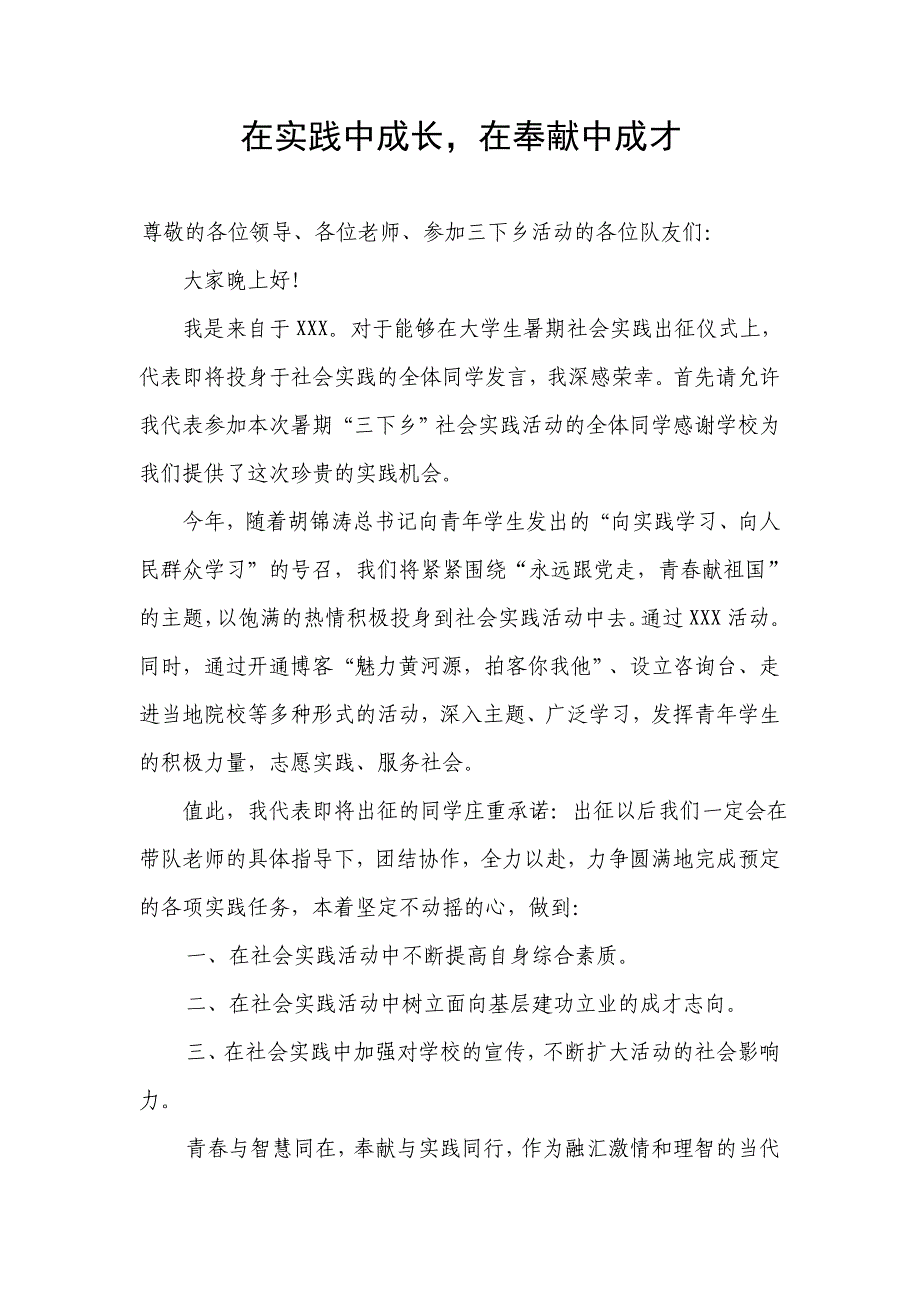 在实践中成长，在奉献中成才
尊敬的各位领导、各位老师、参加三下乡活动的各位队友们：
大家晚上好！
我是来自于 XXX。对于能够在大学生暑期社会实践出征仪式上，
代表即将投身于社会实践的全体同学发言，我深感荣幸。首先请允许
我代表参加本次暑期“三下乡”社会实践活动的全体同学感谢学校为
我们提供了这次珍贵的实践机会。
今年，随着胡锦涛总书记向青年学生发出的“向实践学习、向人
民群众学习”的号召，我们将紧紧围绕“永远跟党走，青春献祖国”
的主题，以饱满的热情积极投身到社会实践活动中去。通过 XXX 活动。
同时，通过开通博客“魅力黄河源，拍客你我他”、设立咨询台、走
进当地院校等多种形式的活动，深入主题、广泛学习，发挥青年学生
的积极力量，志愿实践、服务社会。
值此，我代表即将出征的同学庄重承诺：出征以后我们一定会在
带队老师的具体指导下，团结协作，全力以赴，力争圆满地完成预定
的各项实践任务，本着坚定不动摇的心，做到：
一、在社会实践活动中不断提高自身综合素质。
二、在社会实践活动中树立面向基层建功立业的成才志向。
三、在社会实践中加强对学校的宣传，不断扩大活动的社会影响
力。
青春与智慧同在，奉献与实践同行，作为融汇激情和理智的当代